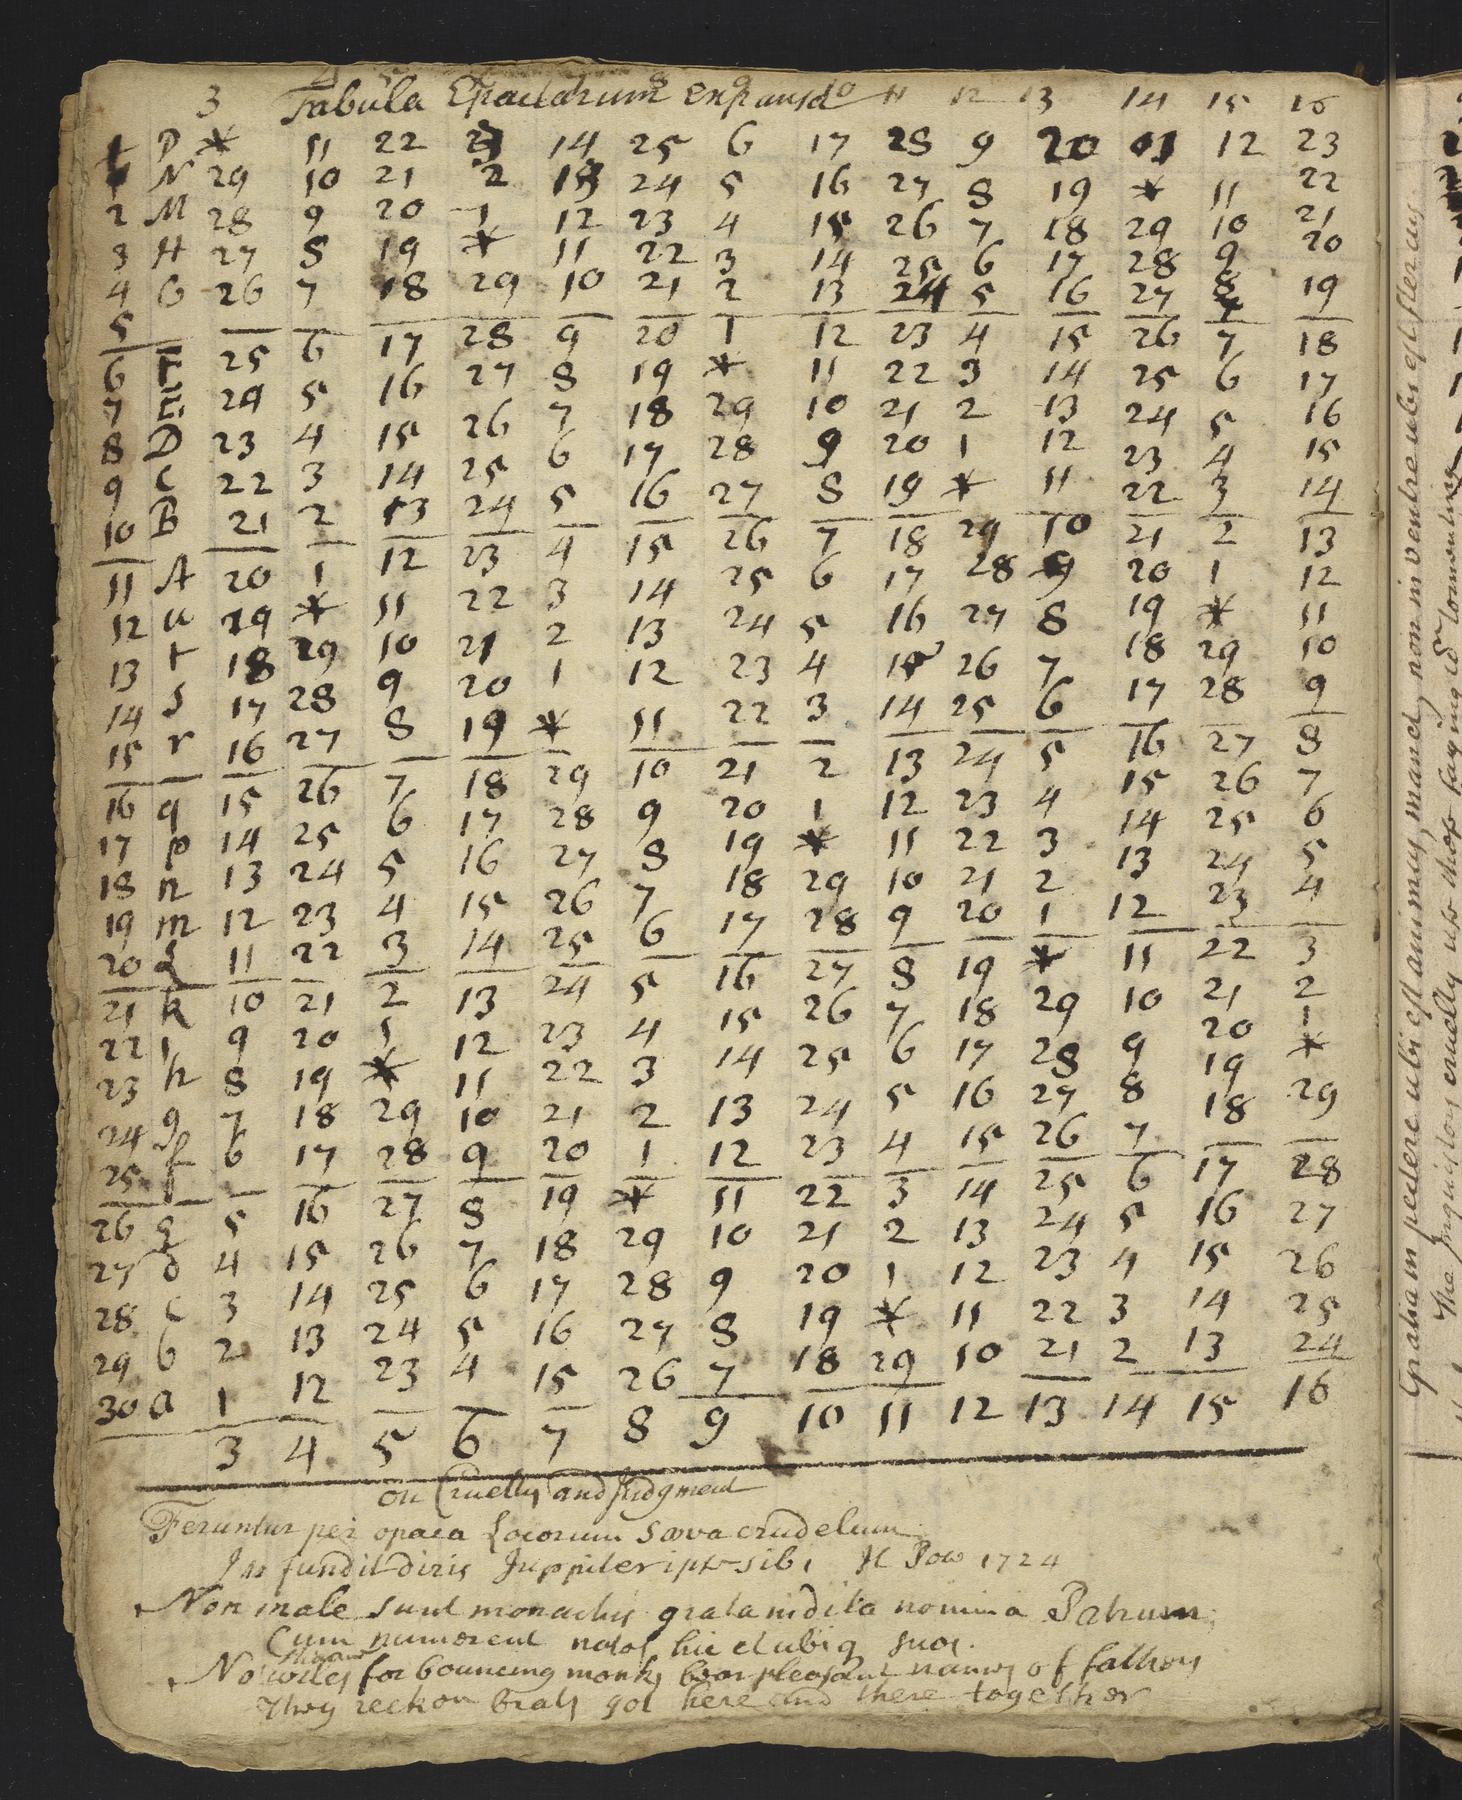 3 4 5 Tabula Epactarum 8 expansa 9 10 11 12 13 14 15 16
1 P * 11 22 3 14 25 6 17 28 9 20 01 12 23
N 29 10 21 2 13 24 5 16 27 8 19 * 11 22
2 M 28 9 20 1 12 23 4 15 26 7 18 29 10 21
3 H 27 8 19 * 11 22 3 14 25 6 17 28 9 20
4 G 26 7 18 29 10 21 2 13 24 5 16 27 8 19
5
6 F 25 6 17 28 9 20 1 12 23 4 15 26 7 18
7 E 24 5 16 27 8 19 * 11 22 3 14 25 6 17
8 D 23 4 15 26 7 18 29 10 21 2 13 24 5 16
9 C 22 3 14 25 6 17 28 9 20 1 12 23 4 15
10 B 21 2 13 24 5 16 27 8 19 * 11 22 3 14
11 A 20 1 12 23 4 15 26 7 18 29 10 21 2 13
12 u 19 * 11 22 3 14 25 6 17 28 9 20 1 12
13 t 18 29 10 21 2 13 24 5 16 27 8 19 * 11
14 s 17 28 9 20 1 12 23 4 15 26 7 18 29 10
15 r 16 27 8 19 * 11 22 3 14 25 6 17 28 9
16 q 15 26 7 18 29 10 21 2 13 24 5 16 27 8
17 p 14 25 6 17 28 9 20 1 12 23 4 15 26 7
18 n 13 24 5 16 27 8 19 * 11 22 3 14 25 6
19 m 12 23 4 15 26 7 18 29 10 21 2 13 24 5
20 l 11 22 3 14 25 6 17 28 9 20 1 12 23 4
21 k 10 21 2 13 24 5 16 27 8 19 * 11 22 3
22 i 9 20 1 12 23 4 15 26 7 18 29 10 21 2
23 h 8 19 * 11 22 3 14 25 6 17 28 9 20 1
24 g 7 18 29 10 21 2 13 24 5 16 27 8 19 *
25 f 6 17 28 9 20 1 12 23 4 15 26 7 18 29
26 e 5 16 27 8 19 * 11 22 3 14 25 6 17 28
27 d 4 15 26 7 18 29 10 21 2 13 24 5 16 27
28 c 3 14 25 6 17 28 9 20 1 12 23 4 15 26
29 b 2 13 24 5 16 27 8 19 * 11 22 3 14 25
30 a 1 12 23 4 15 26 7 18 29 10 21 2 13 24
3 4 5 6 7 8 9 10 11 12 13 14 15 16
on Cruelty and Judgment
Feruntur per opaca Locorum sæva crudelium
fundit diris Juppiter ipse sibi Pow 1724
Non male sunt monachis grata indita nomina Patrum,
Cum numerent natos hic et ubiq suos.
No wiles for bouncing monks bear pleasant names of fathers
They reckon brats got here and there together
Gratia in pectore ubi est animus, manet, non in ventre ubi est stercus
The Inquisitors cruelly use those saying tormenting